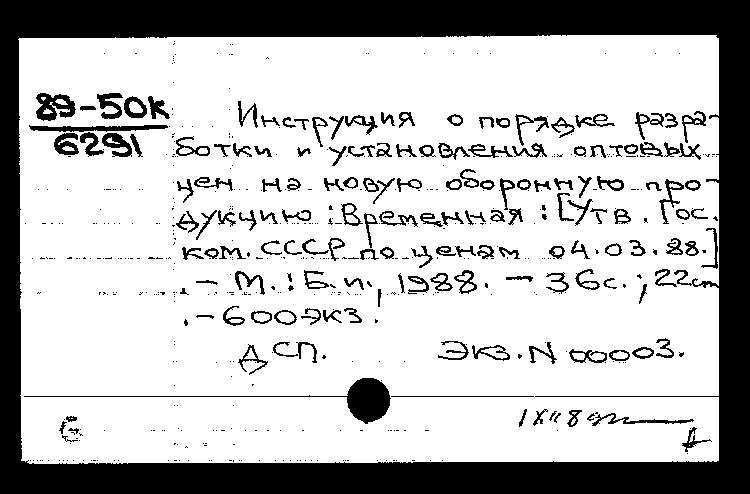 89-50к
6291
Инструкция о порядке разра-
ботки и установления оптовых
цен на новую оборонную про-
дукцию : Временная : [Утв. Гос.
ком. СССР по ценам 04.03.88.]
. – М. : Б.и., 1988. – 36с. ; 22cm
. – 600экз.
ДСП. Экз. N 00003.
Б